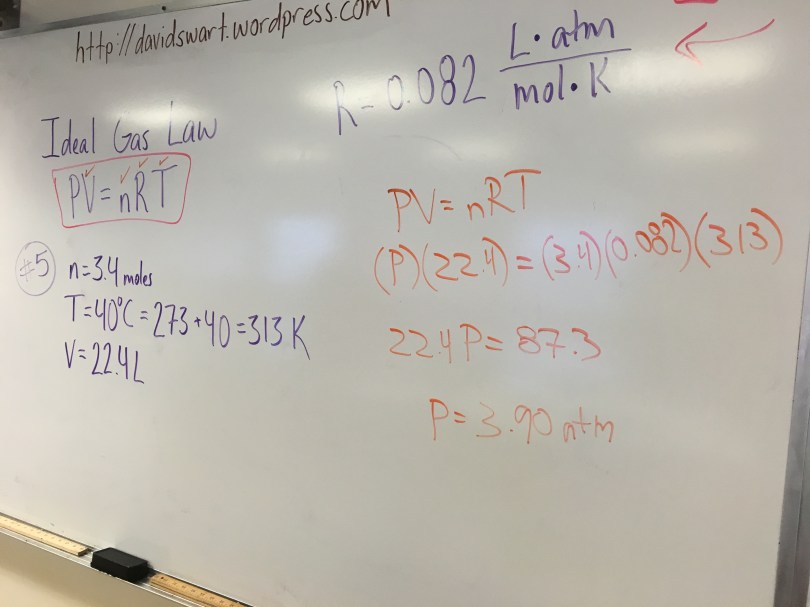 http://davidswart.wordpress.com
R=0.082 L·atm/mol·K
Ideal Gas Law
PV=nRT
#5 n=3.4 moles
T=40°C=273+40=313K
V=22.4L
PV=nRT
(P)(22.4)=(3.4)(0.082)(313)
22.4P=87.3
P=3.90 atm